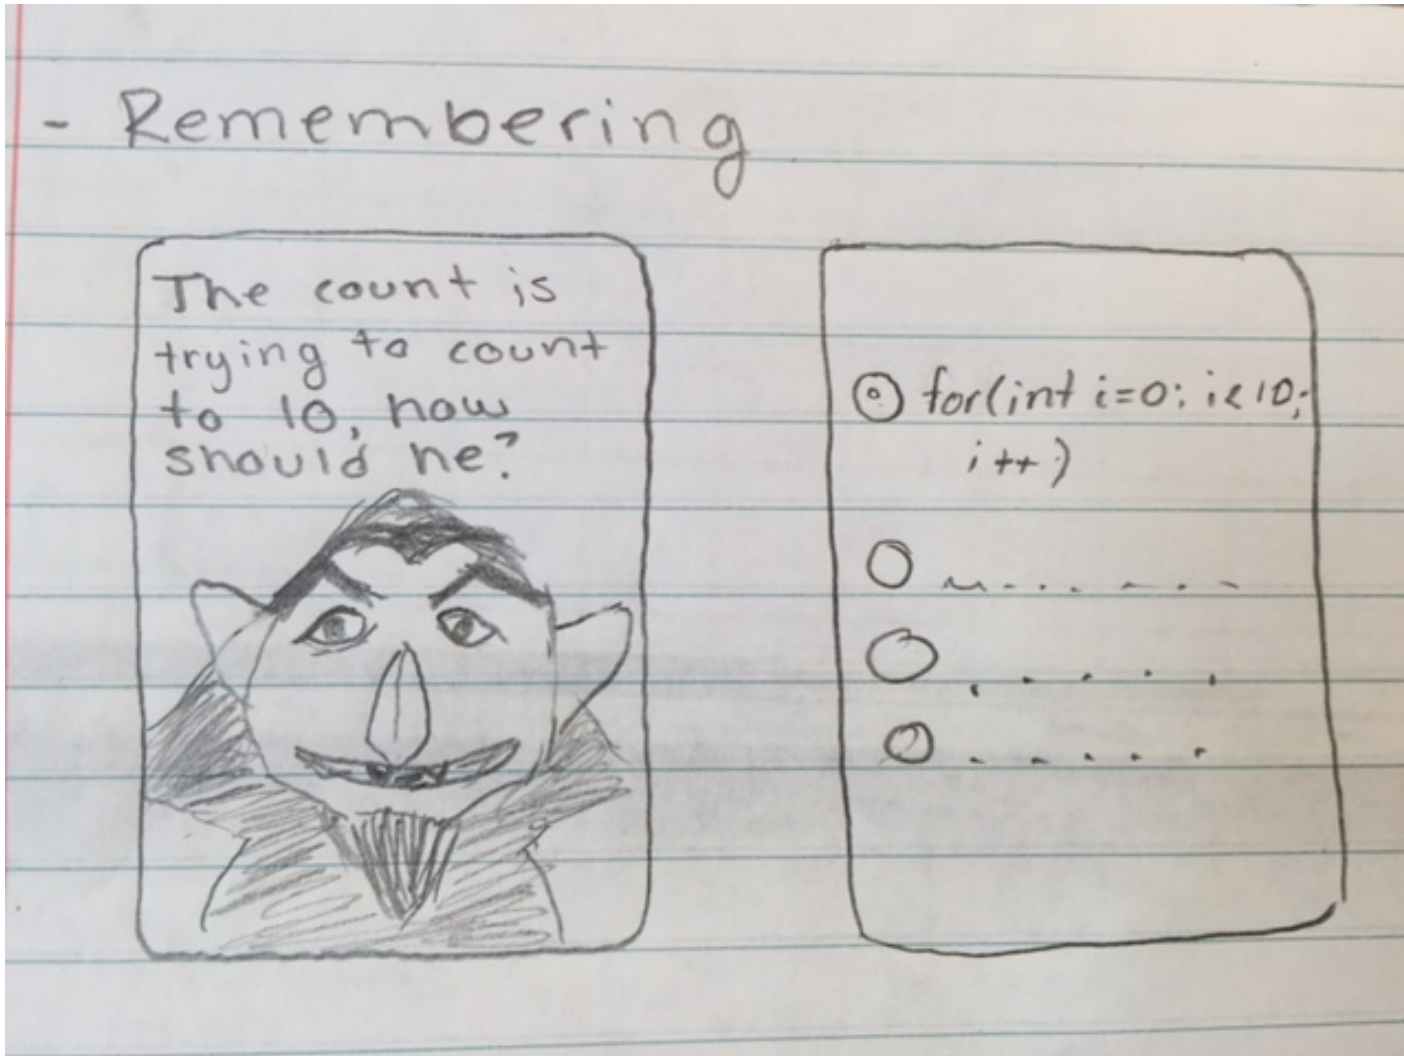 - Remembering
The count is
trying to count
to 10, how
should he?
for(int i=0; i<10;
i++)